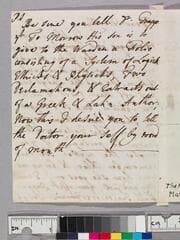 Be sure you tell Dr.
To Morrow His son is to
give to the Warden &
consisting of a System of Logick
Ethicks & Physicks, Two
Declamations, & Extracts out
of a Greek & Latin Author.
Now this I desire you to tell
the Doctor your self by word
of mouth.